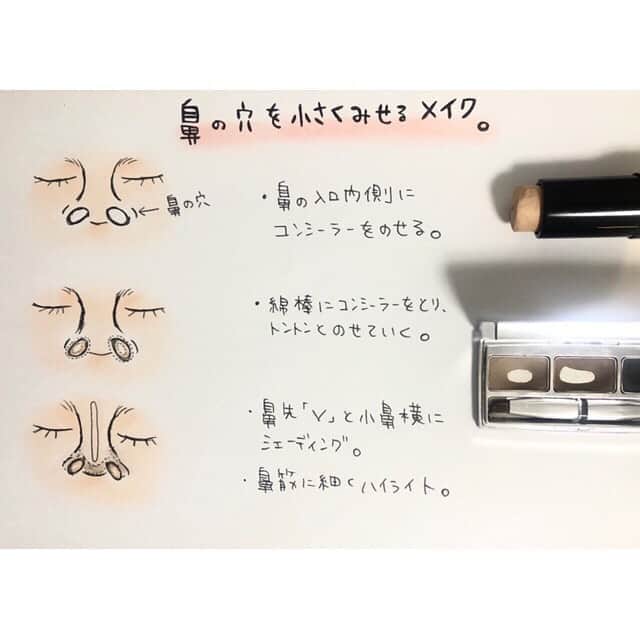 鼻の穴を小さくみせるメイク。
鼻の穴
・鼻の入口内側に
コンシーラーをのせる。
・綿棒にコンシーラーをとり、
トントンとのせていく。
・鼻先「V」と小鼻横に
シェーディング。
・鼻筋に細くハイライト。